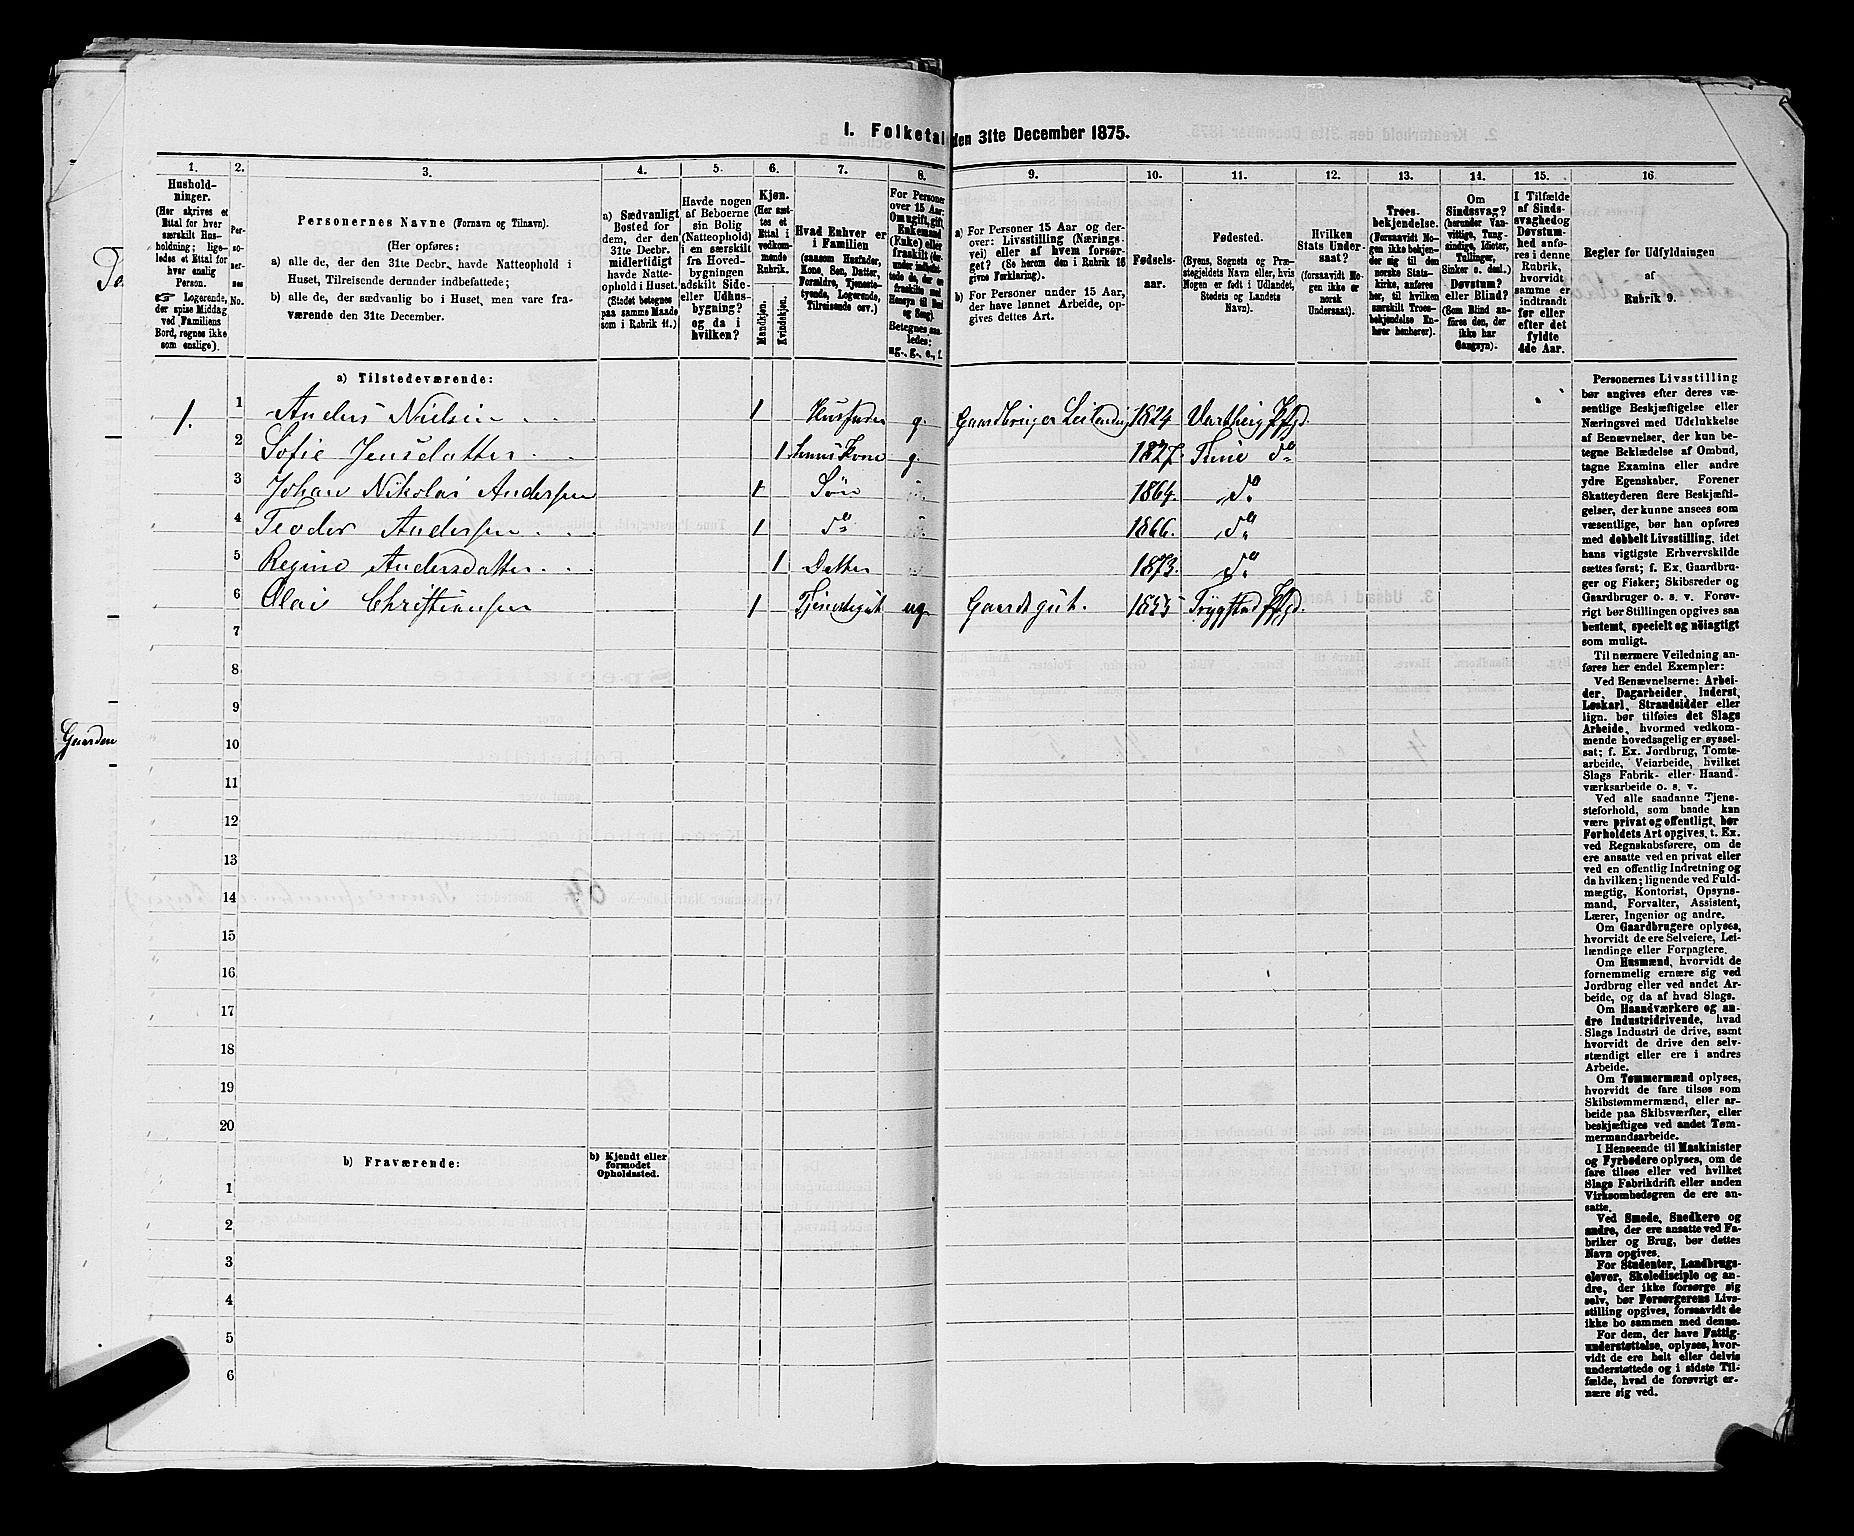 I. Folketal den 31te December 1875.
1. 2. 3. 4. 5. 6. 7. 8. 9. 10. 11. 12. 13. 14. 15. 16
Husholdninger.
(Her skrives et
Ettal for hver
særskilt Husholdning;
ligeledes et Ettal for
hver enslig
Person.
☞ Logerende,
der spise Middag
ved Familiens
Bord, regnes ikke
som enslige).
Personernes No.
Personernes Navne (Fornavn og Tilnavn).
(Her opføres:
a) alle de, der den 31te Decbr. havde Natteophold i
Huset, Tilreisende derunder indbefattede;
b) alle de, der sædvanlig bo i Huset, men vare fraværende
den 31te December.
a) Sædvanligt
Bosted for
dem, der den
31te Decbr.
midlertidigt
havde Natteophold
i Huset.
(Stedet betegnes
paa samme Maade
som i Rubrik 11.)
Havde nogen
af Beboerne
sin Bolig
(Natteophold)
i en særskilt
fra Hovedbygningen
adskilt Side-
eller Udhusbygning?
og da i
hvilken?
Kjøn.
(Her sættes
et
Ettal i
vedkommende
Rubrik.
Mandkjøn.
Kvindekjøn.
Hvad Enhver er
i Familien
(saasom Husfader,
Kone, Søn, Datter,
Forældre, Tjenestetyende,
Logerende,
Tilreisende osv.)
For Personer
over 15 Aar:
Om ugift, gift,
Enkemand
(Enke) eller
fraskilt
Betegnes saaledes:
ug., g., e., f.
a) For Personer 15 Aar og derover:
Livsstilling (Næringsvei)
eller af hvem forsørget?
(Se herom den i Rubrik 16
givne Forklaring).
b) For Personer under 15 Aar,
der have lønnet Arbeide, opgives
dettes Art.
Fødselsaar.
Fødested.
(Byens, Sognets og Præstegjeldets
Navn eller, hvis
Nogen er født i Udlandet,
Stedets og Landets
Navn).
Hvilken
Stats Undersaat?
(forsaavidt Nogen
ikke er
norsk
Undersaat).
Troesbekjendelse.
(Forsaavidt Nogen
ikke bekjender
sig til den
norske Statskirke,
anføres
her, til hvilken
særskilt Troesbekjendelse
Enhver
henhører).
Om
Sindssvag?
(herunder Vanvittige,
Tungsindige,
Idioter,
Tullinger,
Sinker o. desl.)
Døvstum?
eller Blind?
(Som Blind anføres
den, der
ikke har
Gangsyn).
I Tilfælde
af Sindssvaghed
og
Døvstumhed
anføres
i denne
Rubrik,
hvorvidt
samme er
indtraadt
før eller
efter det
fyldte
4de Aar.
Regler for Udfyldningen
af
Rubrik 9.
a) Tilstedeværende:
1. 1 Anders Nielsen 1 Husfader g. Gaardbruger Leilending 1824 Vartheig Pfgd.
2 Sofie Jensdatter 1 Huus Kone g. 1827. Tune do
3 Johan Nikolai Andersen 1 Søn 1864. do
4 Teodor Andersen 1 do 1866. do
5 Regine Andersdatter 1 Datter 1873. do
6 Olai Christiansen 1 Tjenestegut ug. Gaardsgut. 1855 Trygstad Pfgd.
7
8
9
Gaarden
10
11
12
13
14
15
16
17
18
19
20
b) Fraværende:
b) Kjendt eller
formodet
Opholdssted.
1
2
3
4
5
6
Personernes Livsstilling
bør angives efter deres væsentlige
Beskjæftigelse eller
Næringsvei med Udelukkelse
af Benævnelser, der kun betegne
Beklædelse af Ombud,
tagne Examina eller andre
ydre Egenskaber. Forener
Skatteyderen flere Beskjæftigelser,
der kunne ansees som
væsentlige, bør han opføres
med dobbelt Livsstilling, idet
hans vigtigste Erhvervskilde
sættes først; f. Ex. Gaardbruger
og Fisker; Skibsreder og
Gaardbruger o. s. v. Forøvrigt
bør Stillingen opgives saa
bestemt, specielt og nöiagtigt
som muligt.
Til nærmere Veiledning anføres
her endel Exempler:
Ved Benævnelserne: Arbeider,
Dagarbeider, Inderst,
Løskarl, Strandsidder eller
lign. bør tilføies det Slags
Arbeide, hvormed vedkommende
hovedsagelig er sysselsat;
f. Ex. Jordbrug, Tomtearbeide,
Veiarbeide, hvilket
Slags Fabrik- eller Haandværksarbeide
o. s. v.
Ved alle saadanne Tjenesteforhold,
som baade kan
være privat og offentligt, bør
Forholdets Art opgives, t. Ex.
ved Regnskabsførere, om de
ere ansatte ved en privat eller
ved en offentlig Indretning og
da hvilken; lignende ved Fuldmægtig,
Kontorist, Opsynsmand,
Forvalter, Assistent,
Lærer, Ingeniør og andre.
Om Gaardbrugere oplyses,
hvorvidt de ere Selveiere, Leilændinge
eller Forpagtere.
Om Husmænd, hvorvidt de
fornemmelig ernære sig ved
Jordbrug eller ved andet Arbeide,
og da af hvad Slags.
Om Haandværkere og andre
Industridrivende, hvad
Slags Industri de drive, samt
hvorvidt de drive den selvstændigt
eller ere i andres
Arbeide.
Om Tømmermænd oplyses,
hvorvidt de fare tilsøs som
Skibstømmermænd, eller arbeide
paa Skibsværfter, eller
beskjæftiges ved andet Tømmermandsarbeide.
I Henseende til Maskinister
og Fyrbødere oplyses, om de
fare tilsøs eller ved hvilket
Slags Fabrikdrift eller anden
Virksomhedsgren de ere ansatte.
Ved Smede, Snedkere og
andre, der ere ansatte ved Fabriker
og Brug, bør dettes
Navn opgives.
For Studenter, Landbrugselever,
Skoledisciple og andre,
der ikke forsørge sig
selv, bør Forsørgerens Livsstilling
opgives, forsaavidt de
ikke bo sammen med denne.
For dem, der have Fattigunderstøttelse,
oplyses, hvorvidt
de ere helt eller delvis
understøttede og i sidste Tilfælde,
hvad de forøvrigt ernære
sig ved.